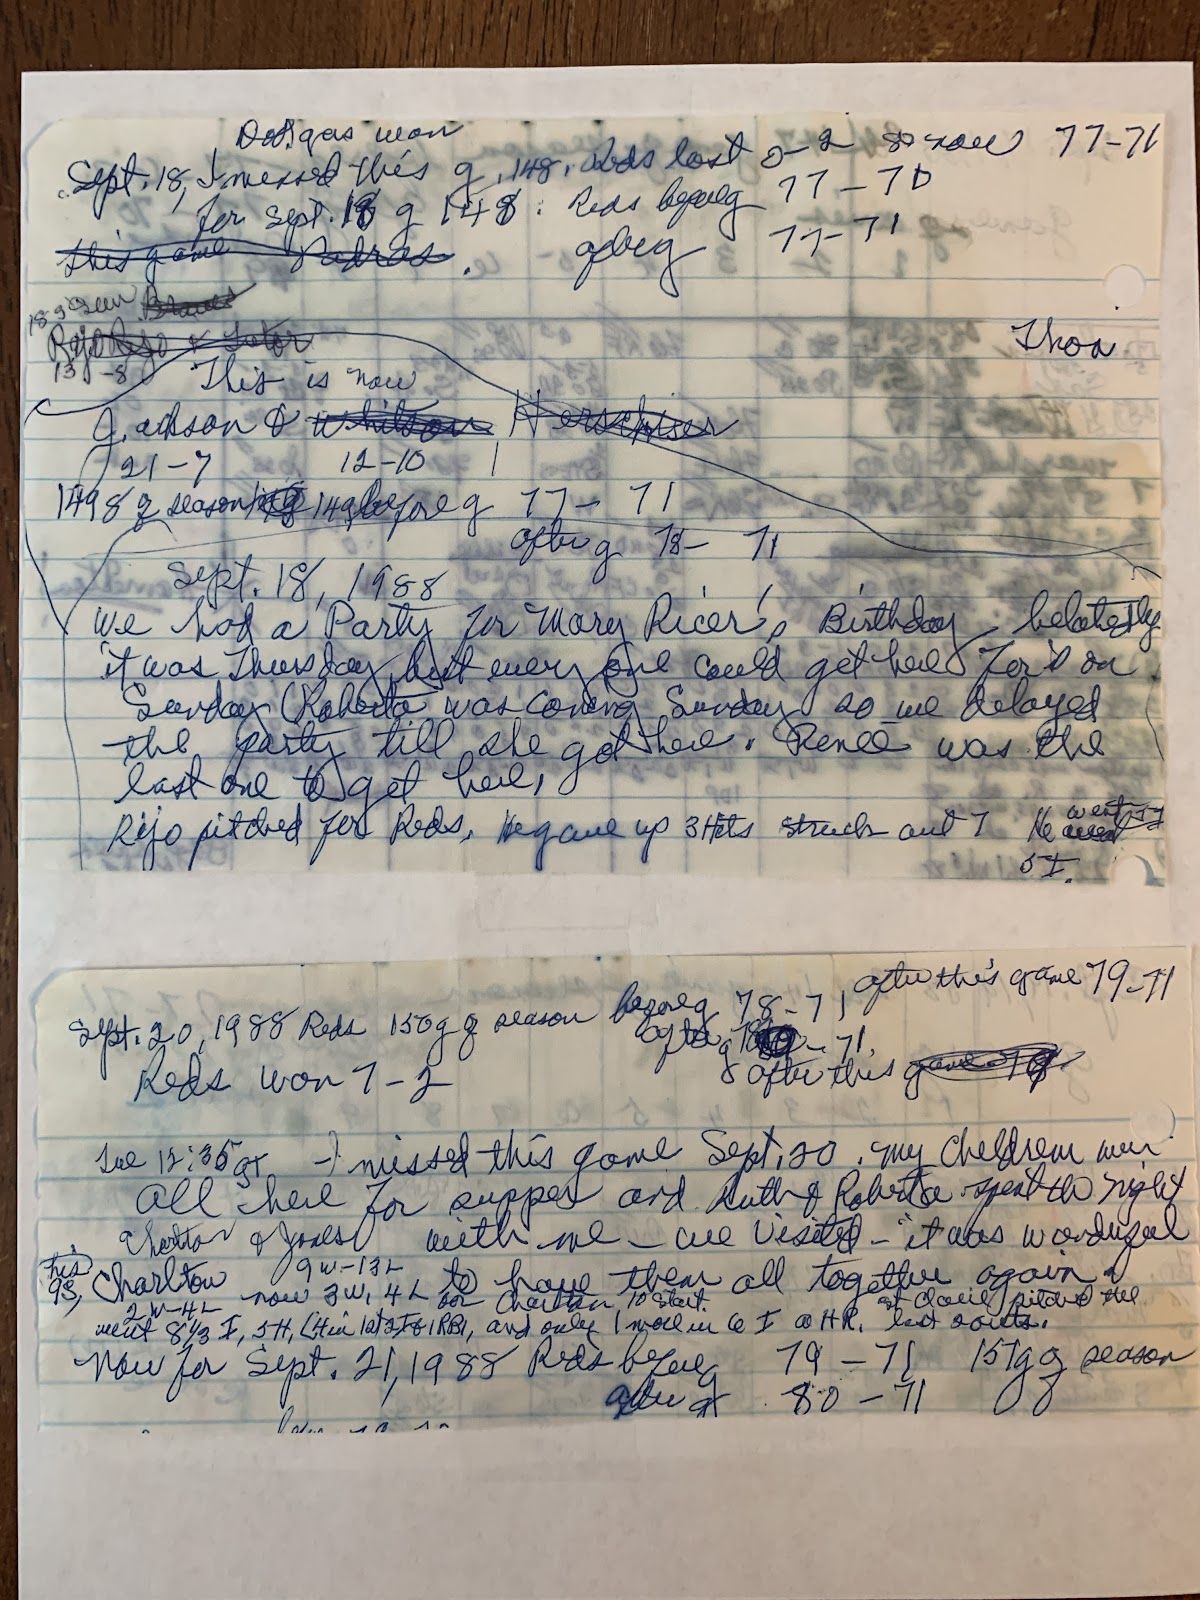 Dodgas won
Sept. 18, I missed this g. 148. Reds lost 0-2 so now 77-71
for Sept. 18 g 148. Reds before g 77-70
this game Padres. after g 77-71
18-9
Braves
Rijo Rijo & Thon
13-8
This is now
Jackson & Whitson Herschiser
21-7 12-10
149 g season 149 before g 77-71
after g 78-71
Sept. 18, 1988
We had a Party for Mary Ricer's Birthday, belatedly
it was Thursday, but every one could get here for it on
Sunday (Roberta was coming Sunday so we delayed
the party till she got here. Renee was the
last one to get here.
Rijo pitched for Reds. He gave up 3 Hits struck out 7 He went
5 I.
after this game 79-71
Sept. 20, 1988 Reds 150 g g season before g 78-71
after g 78 - 71.
Reds won 7-2 after this game
Tue 12:35 - I missed this game Sept. 20. my Children wer
all here for supper and Ruth & Roberta spent the night
Charlton & Jones with me - we visited - it was wonderful
9W-13L
his
9S, Charlton now 3W, 4L to have them all together again.
2W-4L for Charlton, 10 Start. pitched the
went 8 1/3 I, 5H, (H in 1st 2 I & 1 RBI, and only 1 more in 6 I 0 HR. last 2 outs.
Now for Sept. 21, 1988 Reds before g 79-71 151 g g season
after g 80-71